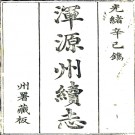 光緒辛巳鐫
渾源州續志
州署藏板